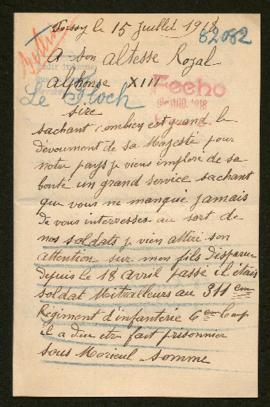 le 15 Juillet 1918
62062
A Son Altesse Royal
Alphonse XIII
Fecho
1918
Le Floch
Sire
sachant combien est grand le
dévoument de sa Majesté pour
notre pays je viens implore de sa
bonté un grand service sachant
que vous ne manque jamais
de vous interresses au sort de
nos soldats je vien attiré son
attention sur mon fils disparue
depuis le 18 avril passé il étais
soldat Mitrailleurs au 311 em
Régiment d'infanterie 6em Comp
il a dieu etre fait prisonnier
sous Moreuil Somme